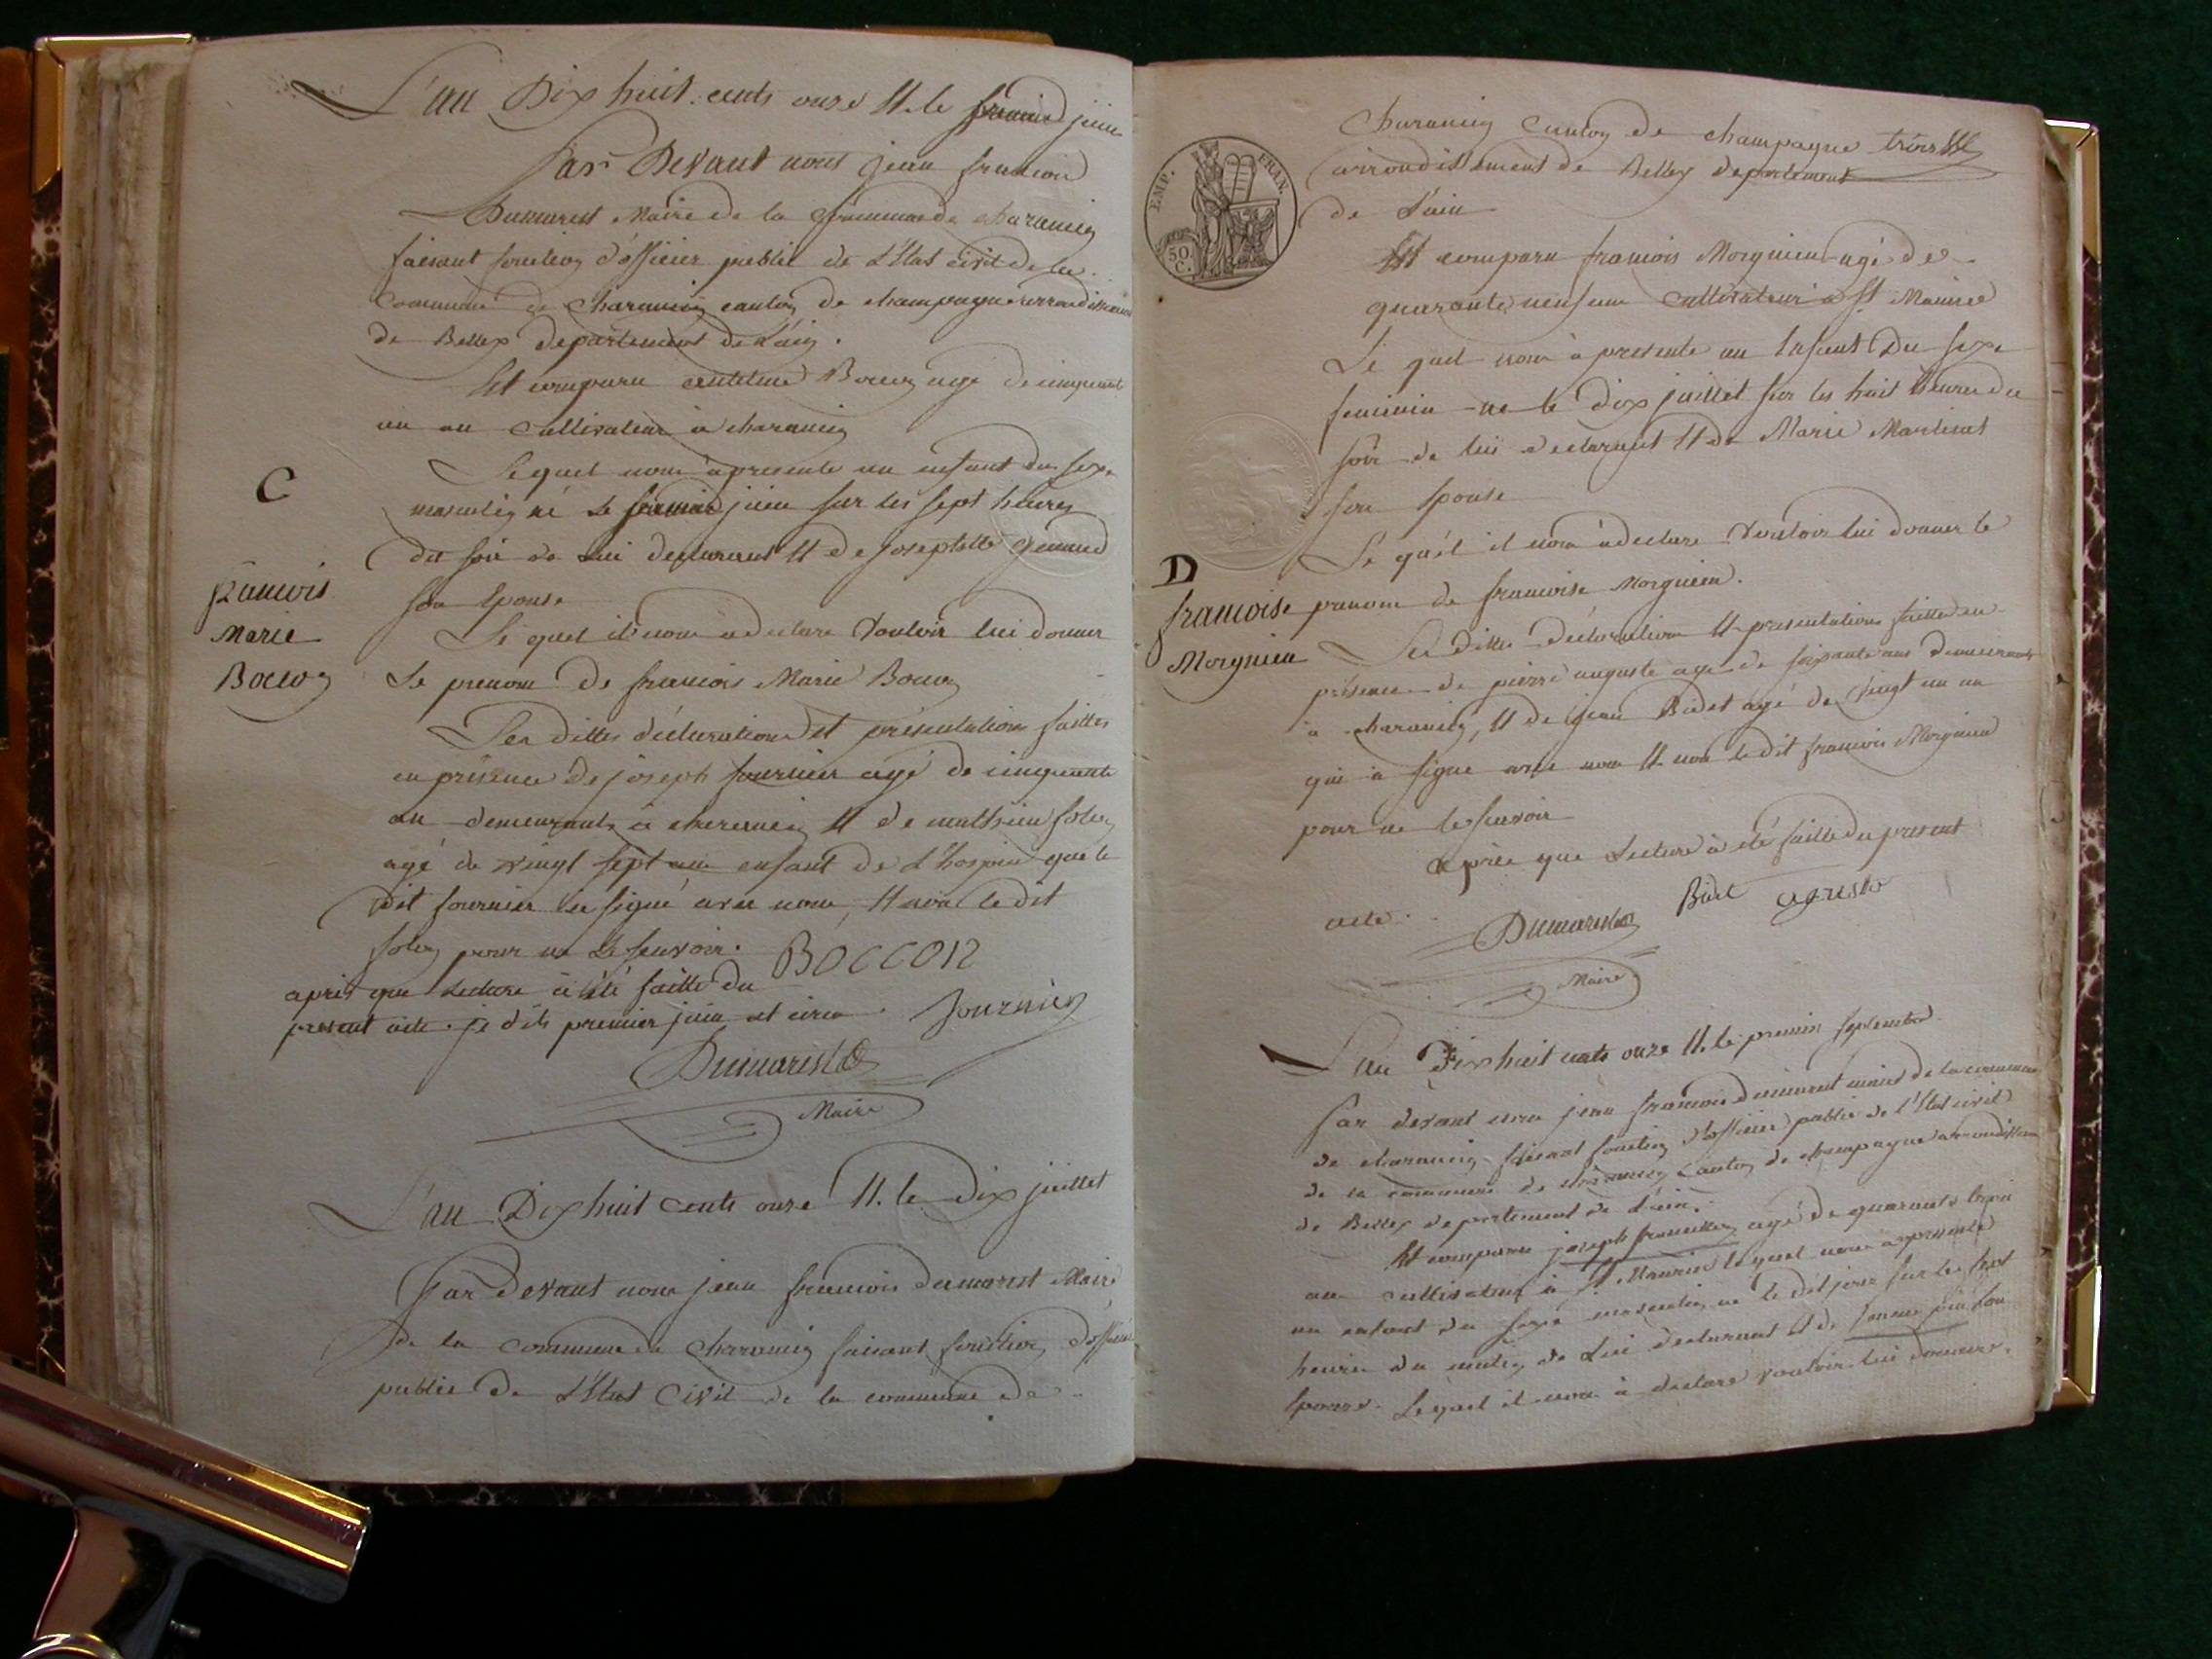 L'an Dix huit cents onze Et le premier juin
Par Devant nous jean francois
Dumarest Maire de la Commune de charancin
faisant fonction d'officier public de L'Etat civil de la
Commune de charancin canton de champagne arrondissement
de Belley departement de L'ain.
Est comparu Boccon agé de cinquante
un an Cultivateur à charancin
Le quel nous à presenté un enfant du sexe
masculin né Le premier juin sur les sept heures
du soir de Lui declarant Et de Josephtte
son Epouse
C
francois
Marie
Boccon
Le quel il nous à declare Vouloir lui donner
Le prenom de francois Marie Boccon
Les dittes déclaration Et présentation faittes
en présence de joseph fournier agé de cinquante
an demeurant à charancin Et de mathieu foley
agé de vingt sept ans enfant de L'hospice que le
dit fournier à signé avec nous, Et non le dit
foley pour ne Le scavoir.
après que Lecture à été faitte du
present acte. je dit premier juin
BOCCON
fournier
Dumarest
Maire
L'an Dix huit cents onze Et le Dix juillet
Par Devant nous jean francois dumarest Maire
de la commune de charancin faisant fonction d'officier
public de L'Etat Civil de la commune de
EMP. FRAN.
50 C.
Charancin Canton de champagne
arrondissement de Belley departement
de L'ain
Est comparu francois Morgnieu agé de
quarante neuf ans Cultivateur à St. Maurice
Le quel nous à presente un Enfant Du sexe
feminin né le Dix juillet sur les huit heures du
soir de lui declarant Et de Marie Martinat
son Epouse
Le quel il nous à declare Vouloir lui donner le
D
francoise
Morgnieu
prenom de francoise Morgnieu.
Les dittes déclaration Et presentation faitte en
présence de pierre auguste agé de soixante ans demeurant
à charancin, Et de jean Bidet agé de vingt un an
qui à signe avec nous Et non le dit francois Morgnieu
pour ne le scavoir
après que Lecture à été faitte du present
acte.
Dumarest
Maire
L'an Dix huit cents onze Et le premier septembre
Par devant nous jean francois dumarest maire de la commune
de charancin faisant fonction d'officier public de l'Etat civil
de la commune de charancin Canton de champagne arrondissement
de Belley departement de L'ain.
Est comparu joseph agé de quarante trois
ans cultivateur à St Maurice le quel nous à presenté
un enfant du sexe masculin né le dit jour sur les sept
heures du matin de Lui declarant Et de son
Epouse. Le quel il nous à declare vouloir lui donner